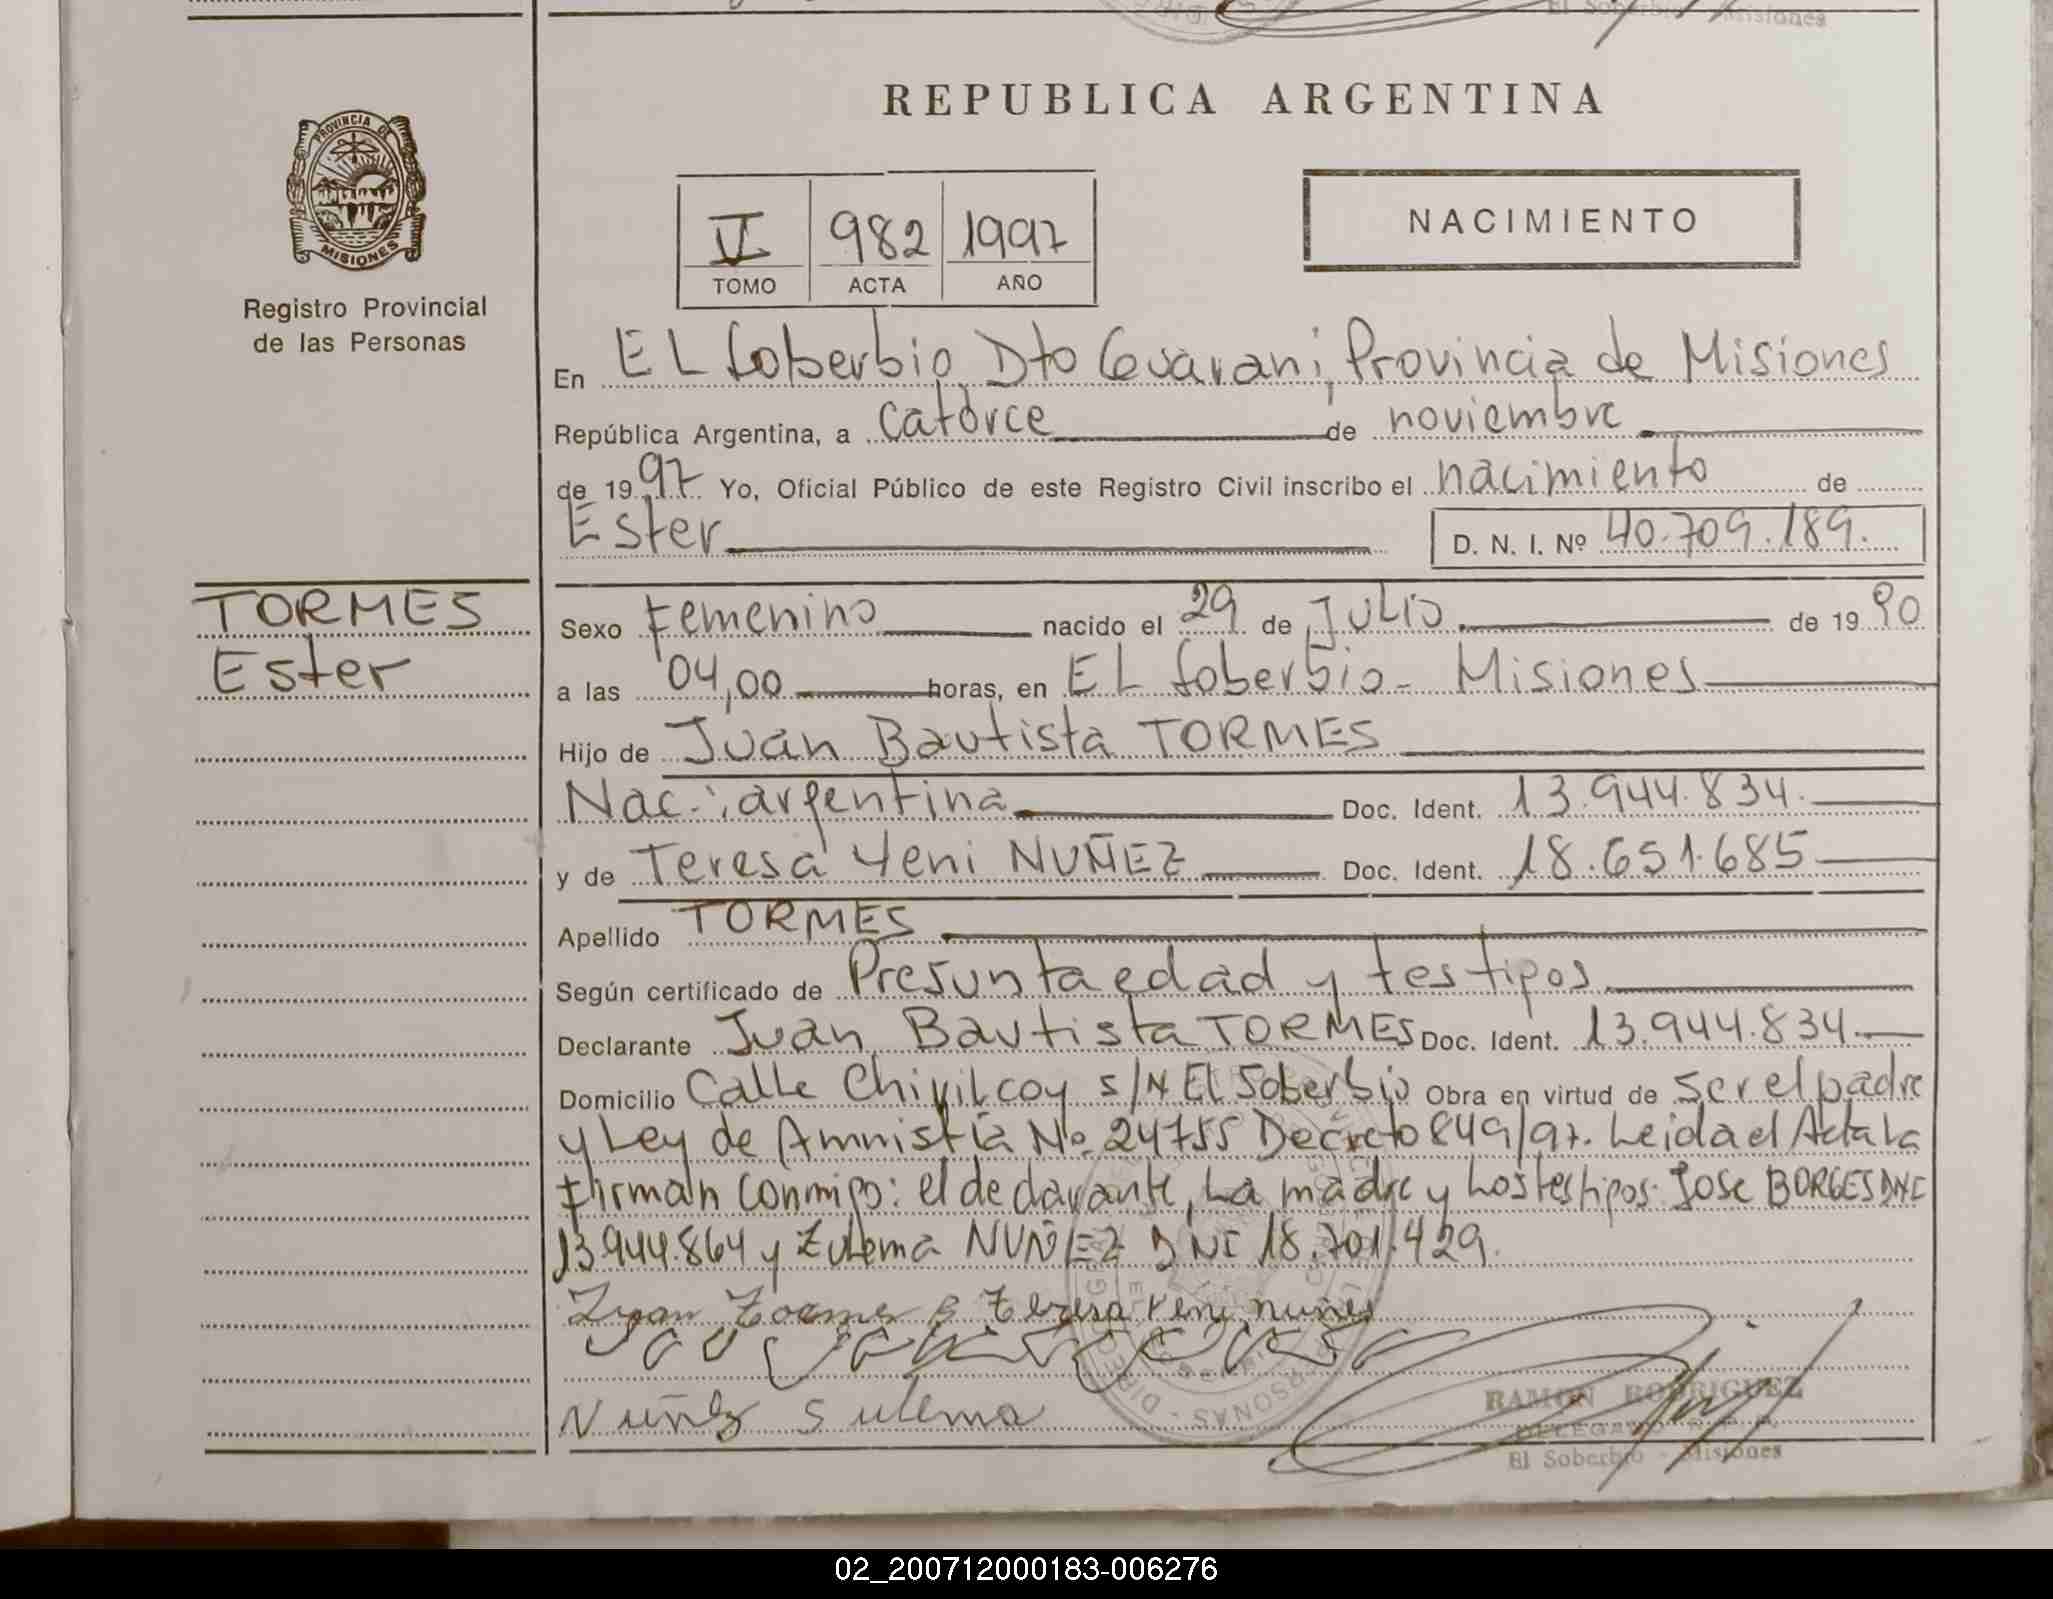 El Soberbio Misiones
REPUBLICA ARGENTINA
PROVINCIA DE
MISIONES
Registro Provincial
de las Personas
V 982 1997
TOMO ACTA AÑO
NACIMIENTO
En EL Soberbio, Dto Guarani, Provincia de Misiones
República Argentina, a catorce de noviembre
de 1997 Yo, Oficial Público de este Registro Civil inscribo el nacimiento de
Ester D. N. I. Nº 40.709.189.
TORMES
Ester
Sexo Femenino nacido el 29 de Julio de 1990
a las 04,00 horas, en EL Soberbio - Misiones
Hijo de Juan Bautista TORMES
Nac.: argentina Doc. Ident. 13.944.834.
y de Teresa Yeni NUÑEZ Doc. Ident. 18.651.685
Apellido TORMES
Según certificado de Presunta edad y testigos
Declarante Juan Bautista TORMES Doc. Ident. 13.944.834.
Domicilio Calle Chivilcoy s/N El Soberbio Obra en virtud de ser el padre
y Ley de Amnistia No. 24755 Decreto 849/97. Leida el Acta la
firman conmigo: el declarante, La madre y Los testigos: Jose BORGES DNI
13.944.864 y Zulema NUÑEZ DNI 18.701.429.
Juan Tormes B Teresa Yeni nuñes
Nuñez Sulema
RAMON RODRIGUEZ
DELEGADO
El Soberbio - Misiones
02_200712000183-006276